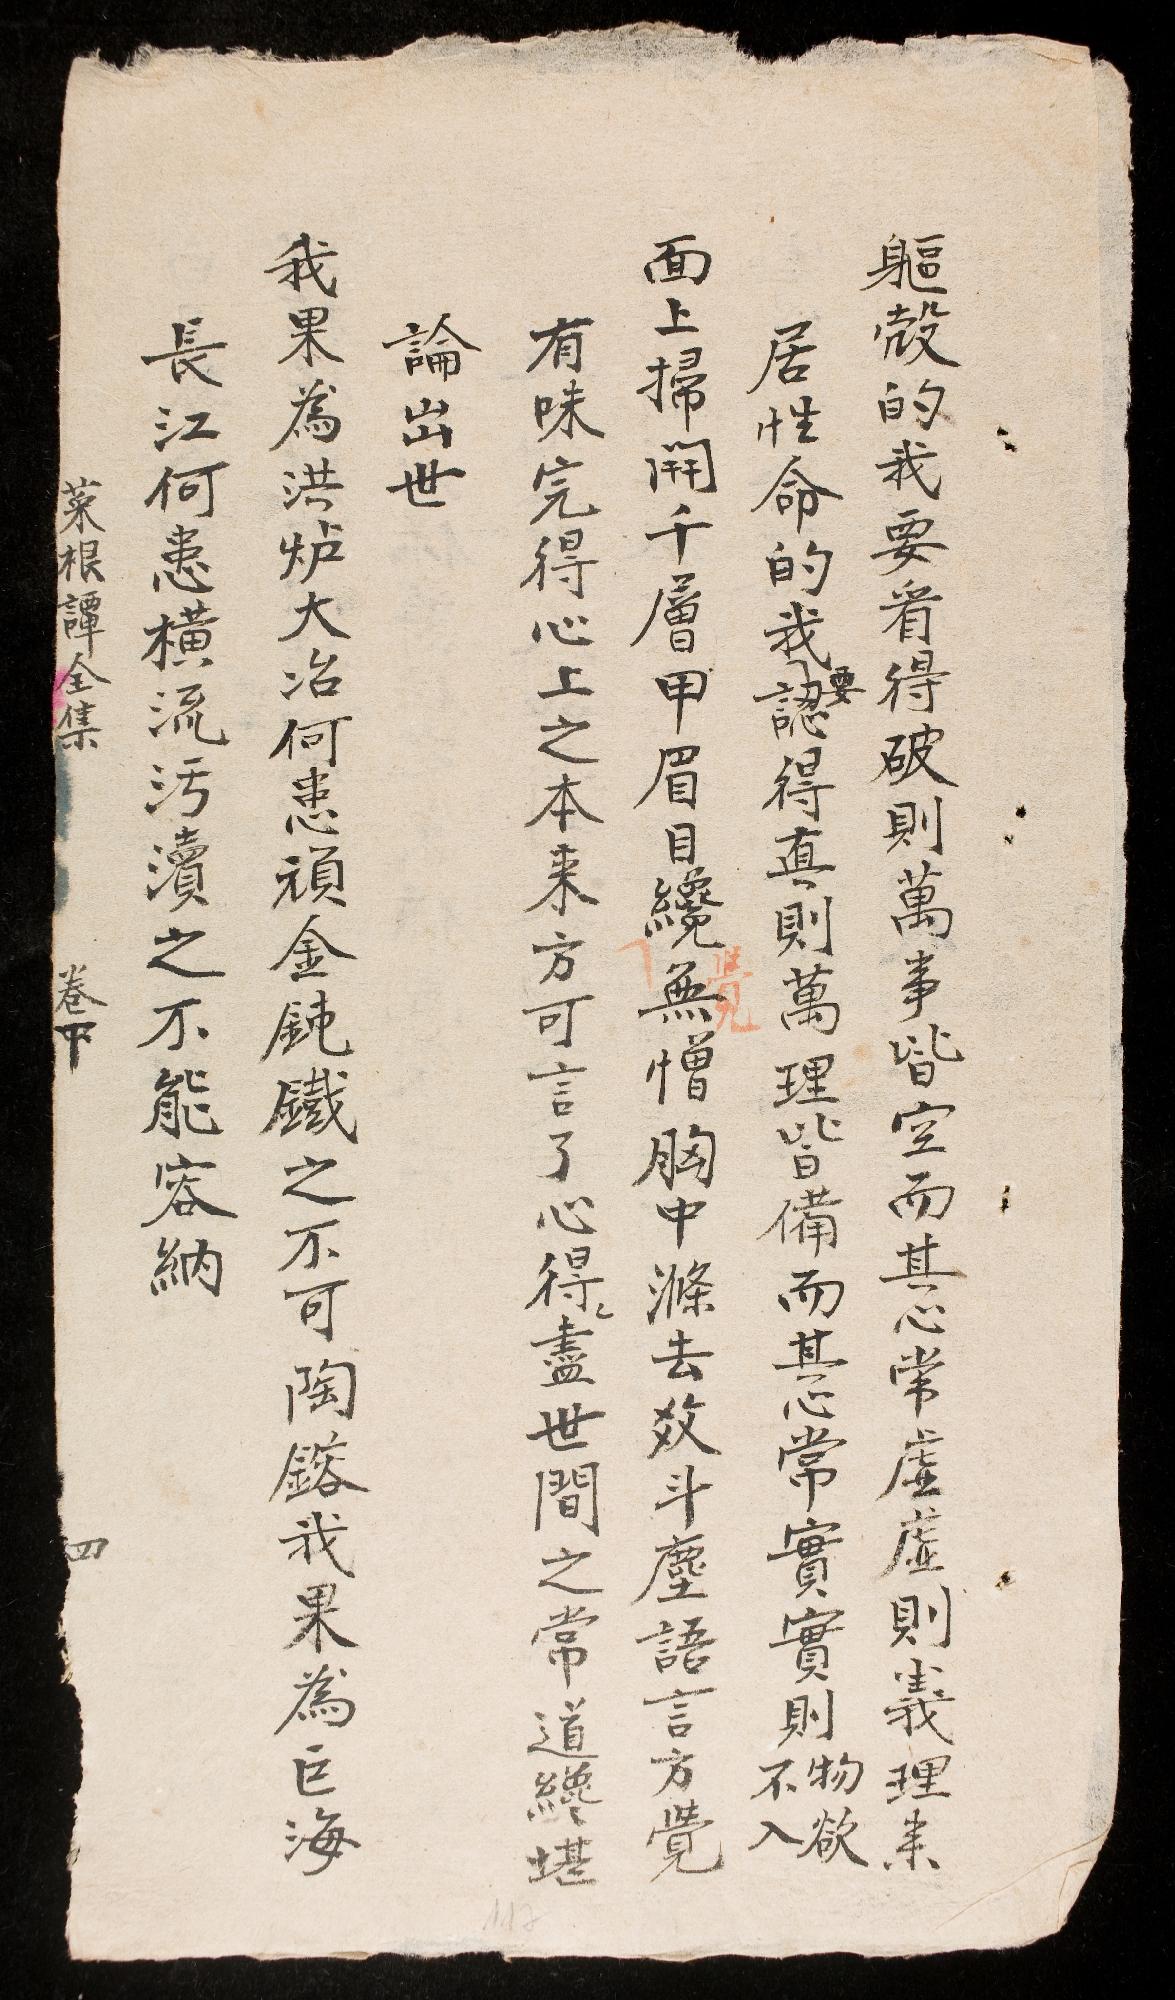 軀殼的我要看得破則萬事皆空而其心常虛虛則義理来
居性命的我要認得真則萬理皆備而其心常實實則物欲不入
面上掃開千層甲眉目纔無憎胸中滌去数斗塵語言方覺
覺
有味完得心上之本来方可言了心得〻盡世間之常道纔堪
論出世
我果為洪炉大冶何患頑金鈍鐵之不可陶鎔我果為巨海
長江何患横流污瀆之不能容納
菜根譚全集 卷下 四
117